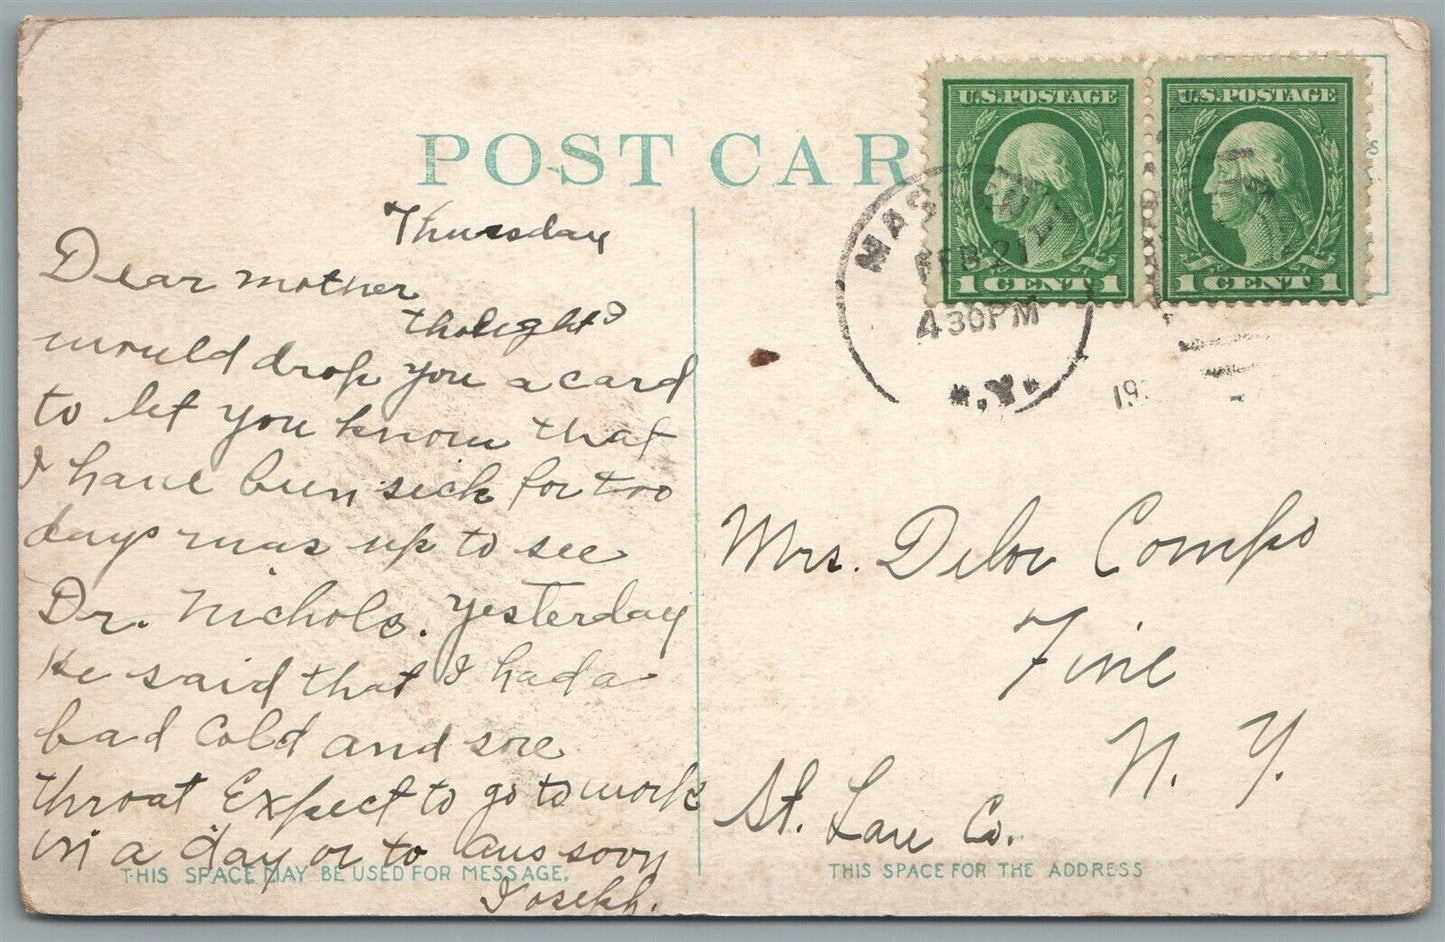 POST CAR
U.S.POSTAGE
1 CENT 1
U.S.POSTAGE
1 CENT 1
MASSENA
FEB 21
430PM
N.Y.
19
Thursday
Dear mother
thought I
would drop you a card
to let you know that
I have been sick for two
days was up to see
Dr. Nichols. yesterday
He said that I had a
bad Cold and sore
throat Expect to go to work
in a day or to Ans soon
Joseph.
THIS SPACE MAY BE USED FOR MESSAGE.
Mrs. Delor Compo
Fine
N. Y.
St. Law Co.
THIS SPACE FOR THE ADDRESS